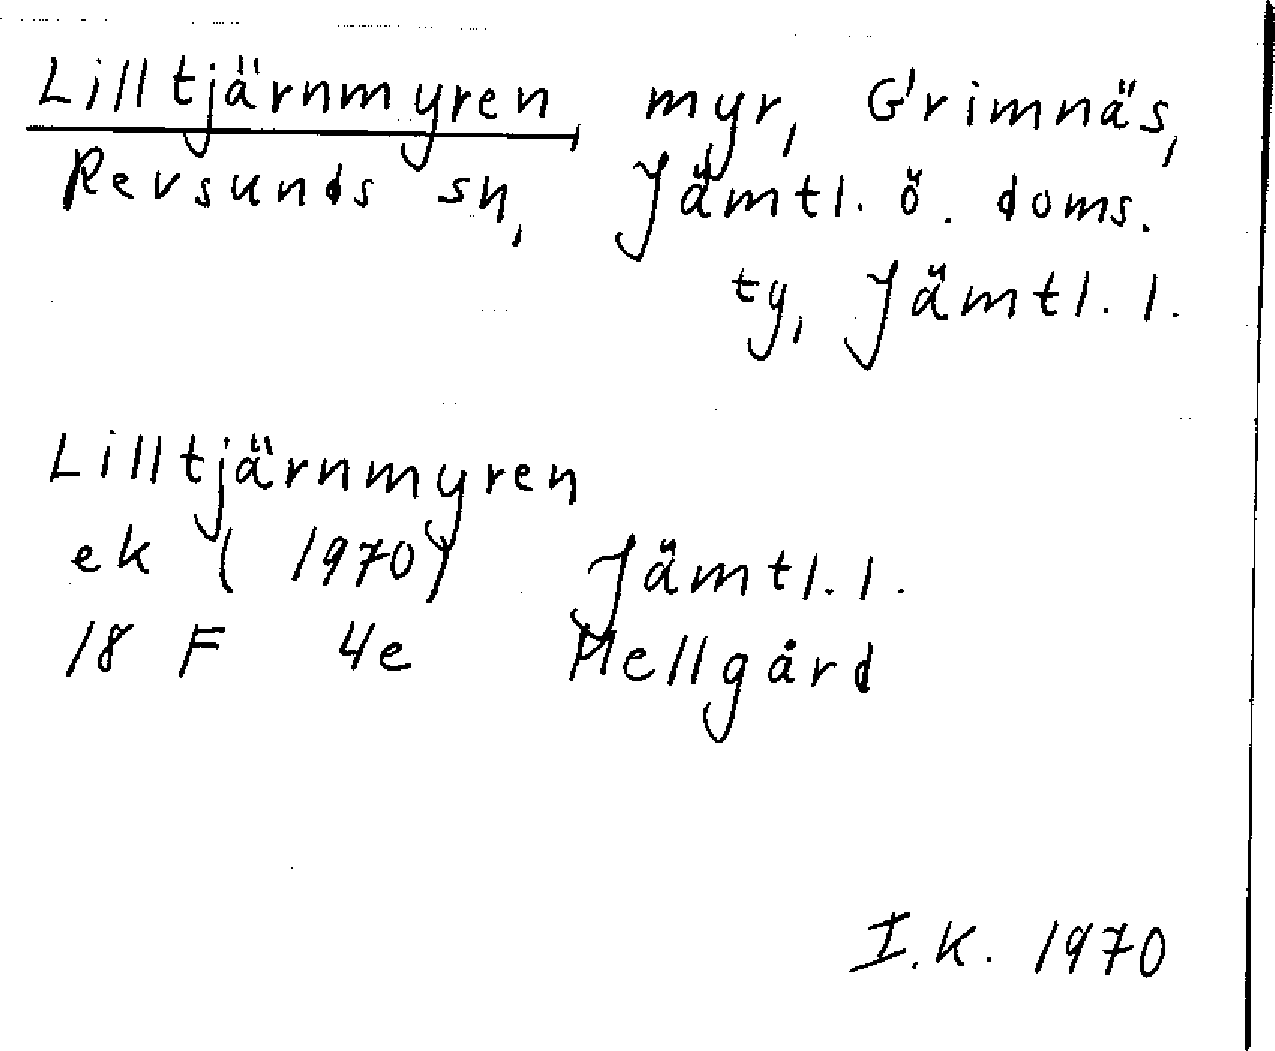 Lilltjärnmyren, myr, Grimnäs,
Revsunds sn, Jämtl. ö. doms.
ty, Jämtl. l.
Lilltjärnmyren
ek (1970) Jämtl. l.
18 F 4e Hellgård
I.K. 1970